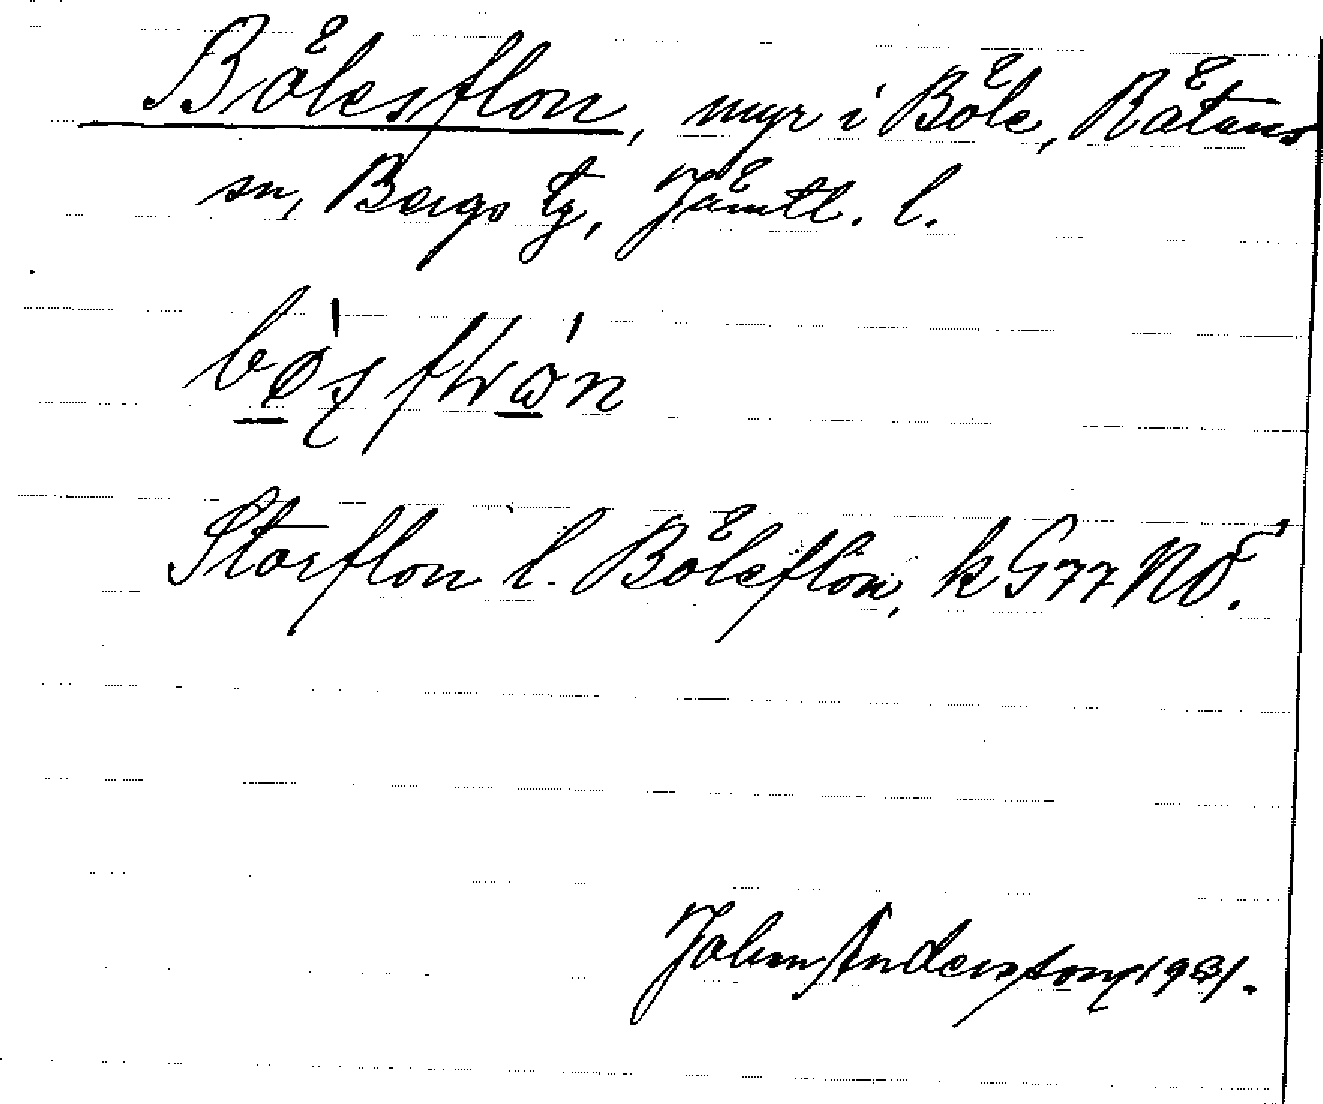 Bölesflon, myr i Böle, Rätans
sn, Bergs tg, Jämtl. l.
Storflon l. Böleflon, k G77 NÖ.
John Andersson, 1931.